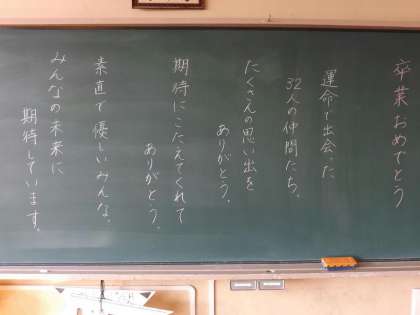 卒業おめでとう
運命で出会った
32人の仲間たち。
たくさんの思い出を
ありがとう。
期待にこたえてくれて
ありがとう。
素直で優しいみんな。
みんなの未来に
期待しています。